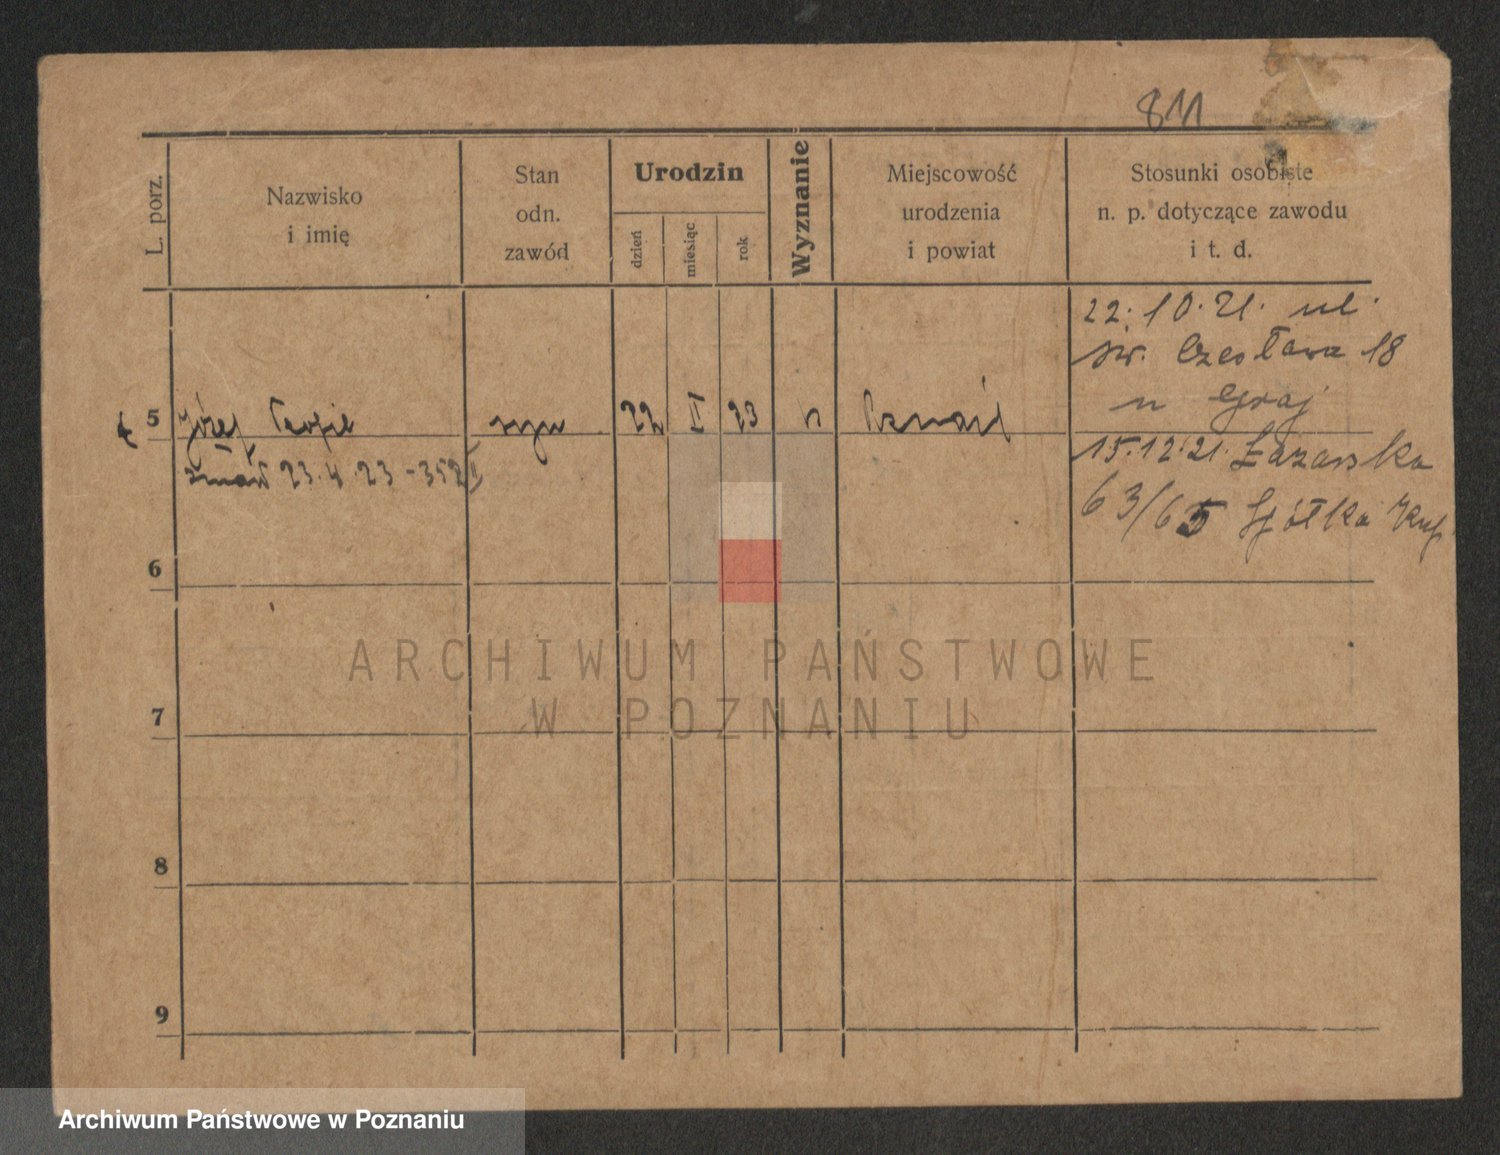 811
L. porz.
Nazwisko
i imię
Stan
odn.
zawód
Urodzin
dzień
miesiąc
rok
Wyznanie
Miejscowość
urodzenia
i powiat
Stosunki osobiste
n. p. dotyczące zawodu
i t. d.
22.10.21. ul.
św. Czesława 18
u Graj
5 Józef Teofil syn 22 II 23 k Poznań
15.12.21. Łazarska
zmarł 23.4 23 - 352 II
63/65 Spółka Kup
6
7
8
9
ARCHIWUM PAŃSTWOWE
W POZNANIU
Archiwum Państwowe w Poznaniu